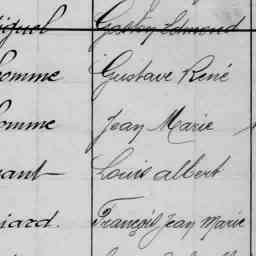 Gaston Edmond
omme Gustave René
omme Jean Marie
ant Louis Albert
iard. François Jean Marie